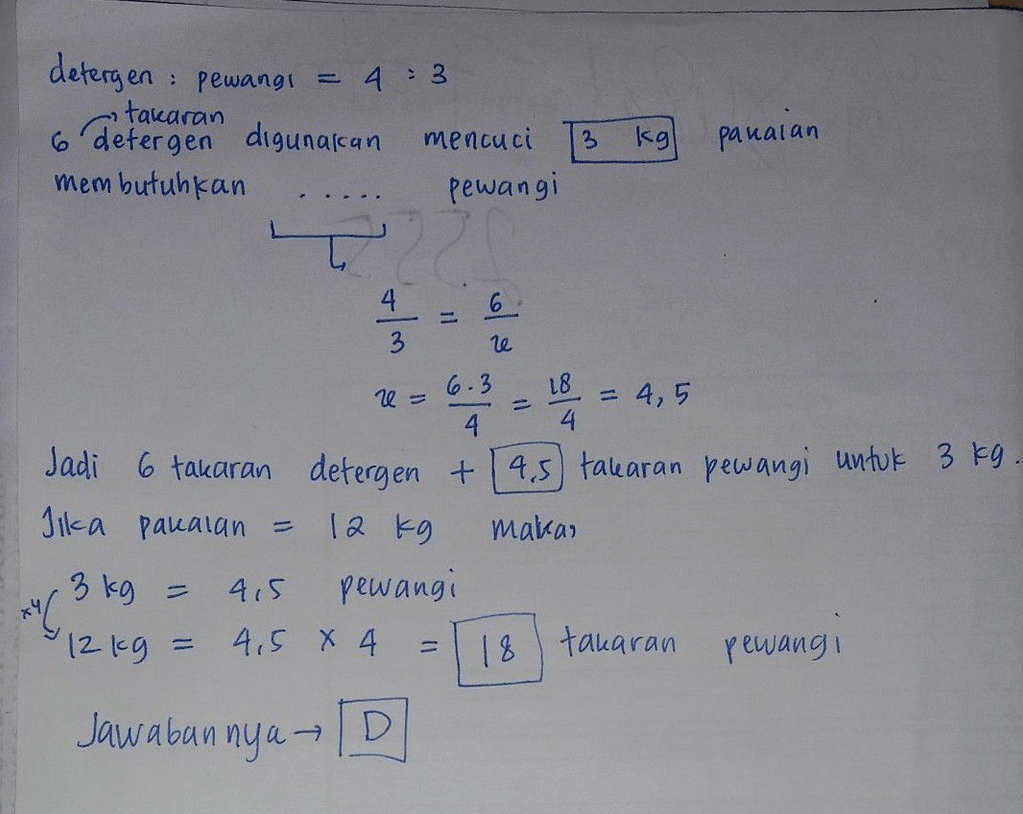 detergen : pewangi = 4 : 3
→ takaran
6 detergen digunakan mencuci 3 kg pakaian
membutuhkan ..... pewangi
4/3 = 6/x
x = 6.3/4 = 18/4 = 4,5
Jadi 6 takaran detergen + 4,5 takaran pewangi untuk 3 kg.
Jika pakaian = 12 kg maka,
3 kg = 4,5 pewangi
x4
12 kg = 4,5 x 4 = 18 takaran pewangi
Jawabannya → D